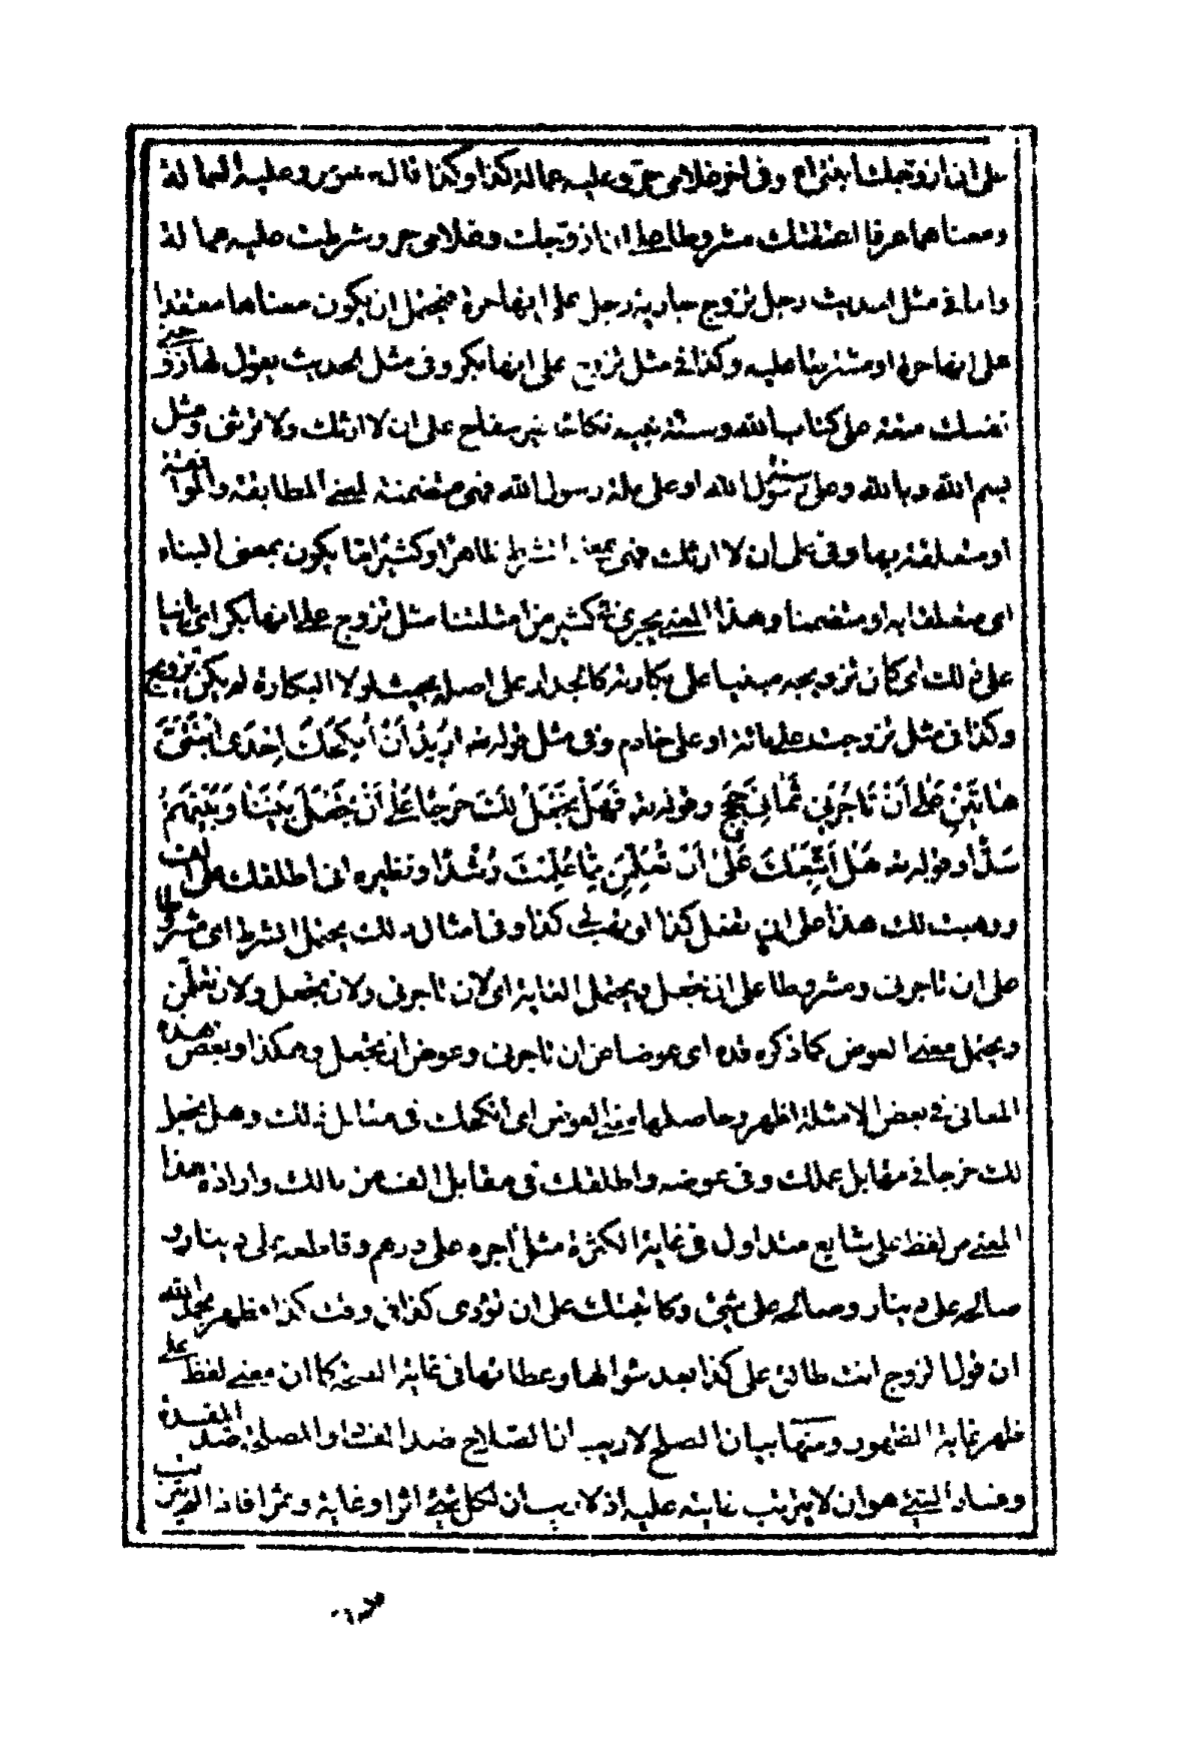 على ان ازوجك ابنتى اه وفى اخر غلامى حر وعليه عمالة كذا وكذا قال هو حر وعليه العمالة
ومعناهما عرفا اعتقتك مشروطا على ان ازوجك وغلامى حر وشرطت عليه عمالة
واما فى مثل الحديث رجل تزوج جارية رجل على انها حرة فيحتمل ان يكون معناها معتقدا
على انها حرة او مشتريا عليه وكذا فى مثل تزوج على انها بكر وفى مثل الحديث يقول لها زو
جينى
نفسك متعة على كتاب الله وسنة نبيه نكاحا غير سفاح على ان لا ارثك ولا ترثنى ومثل
بسم الله وبالله وعلى سنة رسول الله او على ملة رسول الله فهى متضمنة لمعنى المطابقة والموافقة
او متعلقة بها وفى على ان لا ارثك فهى بمعنى الشرط ظاهرا وكثيرا ما يكون بمعنى البناء
اى متعلقا به او متضمنا وهذا المعنى يجرى فى كثير من امثلتنا مثل تزوج على انها بكر اى بانيا
على ذلك اى كان تزويجه مبنيا على بكارته كالجدار على اصله بحيث لولا البكارة لم يكن تزويج
وكذا فى مثل تزوجت على مائة او على خادم وفى مثل قوله تعه اُرِيدُ أَنْ أُنْكِحَكَ إِحْدَى ابْنَتَيَّ
هَاتَيْنِ عَلَى أَنْ تَأْجُرَنِي ثَمَانِيَ حِجَجٍ وقوله تعه فَهَلْ نَجْعَلُ لَكَ خَرْجًا عَلَى أَنْ تَجْعَلَ بَيْنَنَا وَبَيْنَهُمْ
سَدًّا وقوله تعه هَلْ أَتَّبِعُكَ عَلَى أَنْ تُعَلِّمَنِ مِمَّا عُلِّمْتَ رُشْدًا ونظيره انى اطلقك على الف
ووهبت لك هذا على ان تفعل كذا او تعطى كذا وفى امثال ذلك يحتمل الشرط اى مشروطا
على ان تاجرنى ومشروطا على ان تجعل ويحتمل الغاية اى لان تاجرنى ولان تجعل ولان تعلمن
ويحتمل معنى العوض كما ذكره قده اى عوضا عن ان تاجرنى وعوض ان تجعل وهكذا وبعض هذه
المعانى فى بعض الامثلة اظهر وحاصلها معنى العوض اى انكحك فى مقابل ذلك وهل نجعل
لك خرجا فى مقابل عملك وفى عوضه واطلقك فى مقابل الف من مالك وارادة هذا
المعنى من لفظ على شايع متداول فى غاية الكثرة مثل اجره على درهم وقاطعه على دينار و
صالحه على دينار وصالحه على شىء وكاتبتك على ان تؤدى كذا فى وقت كذا فظهر بحمد الله
ان قول الزوج انت طالق على كذا بعد سؤالها وعطائها فى غاية الصحة كما ان معنى لفظ على
ظهر غاية الظهور ومنها بيان الصلح لا ريب ان الصلاح ضد الفساد والمصلحة ضد المفسدة
وفساد الشىء هو ان لا يترتب غايته عليه اذ لا ريب ان لكل شىء اثرا وغاية وثمرا فاذا لم يترتب